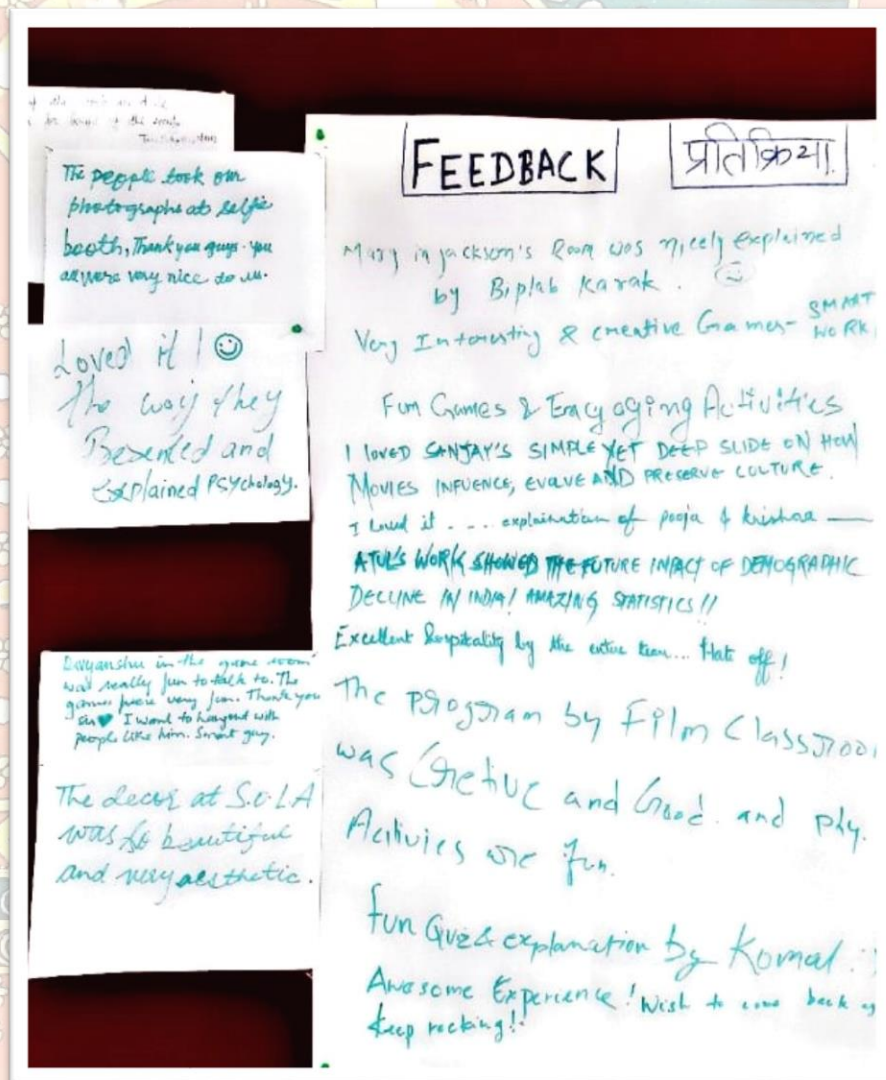 The people took our
photographs at selfie
booth, Thank you guys. you
all were very nice to us.
Loved it! ☺
The way they
Presented and
Explained PSYchology.
Divyanshu in the game room
was really fun to talk to. The
games were very fun. Thank you
sir ♥ I want to hangout with
people like him. Smart guy.
The decor at S.O.L.A
was so beautiful
and very aesthetic.
FEEDBACK प्रतिक्रिया
Mary in jackson's Room was nicely explained
by Biplab Karak. ☺
Very Interesting & creative Games- SMART
WORK
Fun Games & Engaging Activities
I LOVED SANJAY'S SIMPLE YET DEEP SLIDE ON HOW
MOVIES INFUENCE, EVOLVE AND PRESERVE CULTURE.
I loved it .... explaination of pooja & krishna —
ATUL'S WORK SHOWED THE FUTURE IMPACT OF DEMOGRAPHIC
DECLINE IN INDIA! AMAZING STATISTICS!!
Excellent hospitality by the entire team... Hats off!
The program by Film Classroo
was Cretive and Good. and phy.
Activies are fun.
Fun Quiz & explanation by Komal :)
Awesome Experience! Wish to come back ag
keep rocking!!